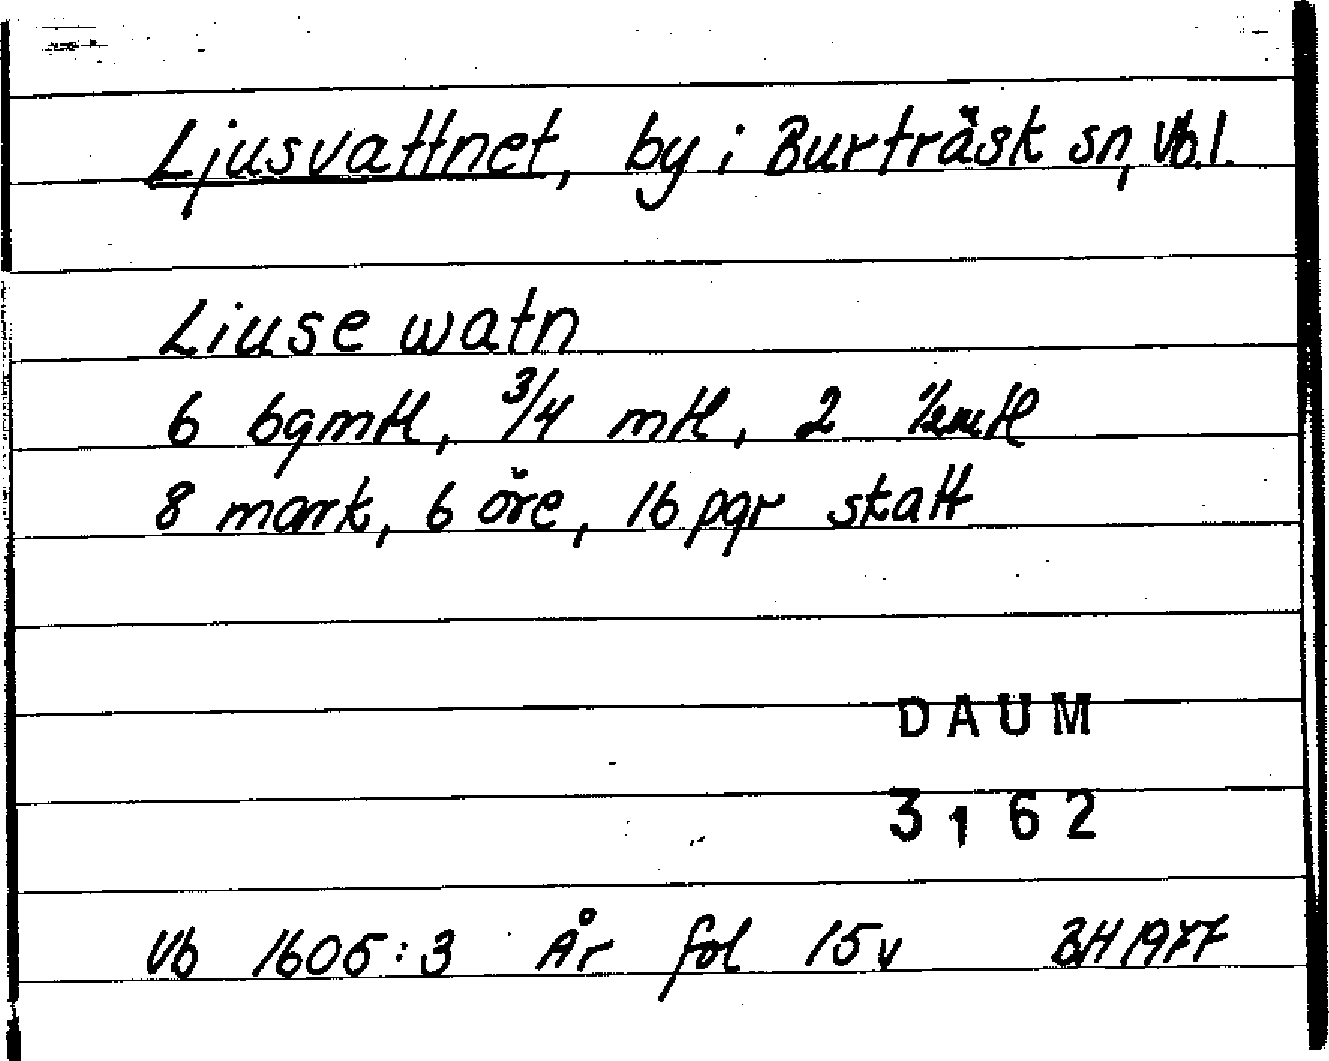 Ljusvattnet, by i Burträsk sn, Vb.l.
Liuse watn
6 bgmtl, 3/4 mtl, 2 1/2mtl
8 mark, 6 öre, 16 pgr skatt
DAUM
3162
Vb 1605:3 År fol 15v BH 1977